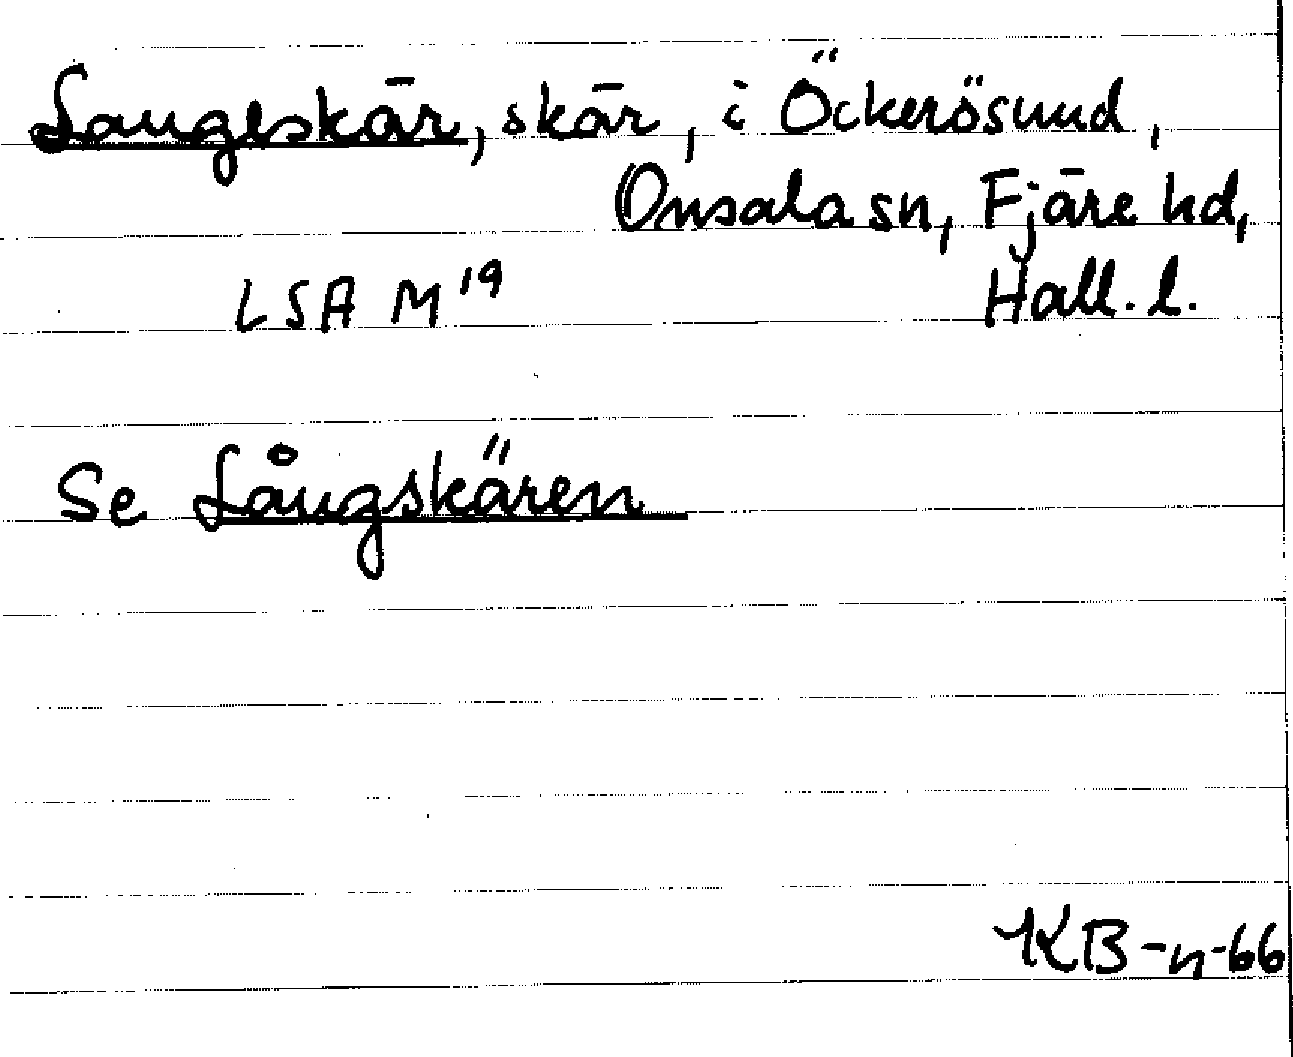 Langeskär, skär, i Öckerösund,
Onsala sn, Fjäre hd,
LSA M19 Hall. l.
Se Långskären
KB-n-66